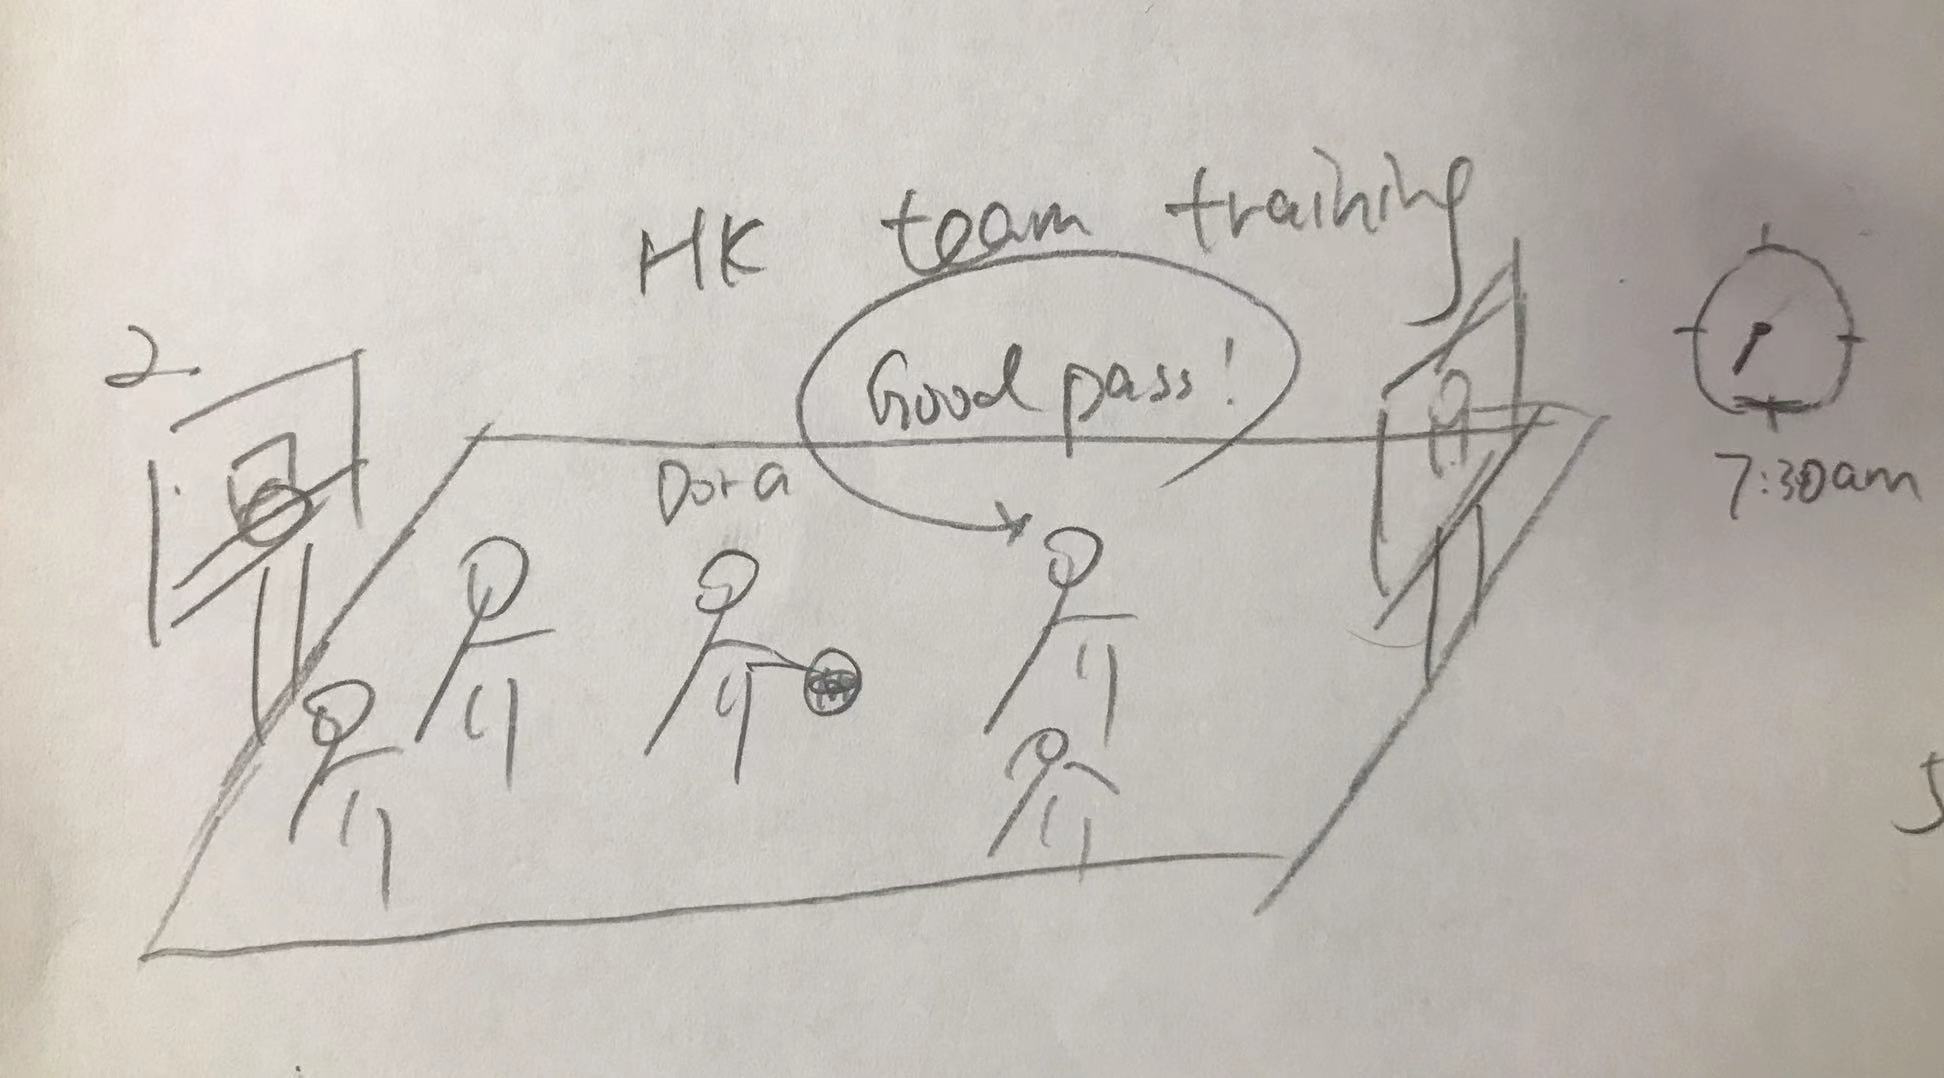 HK team training
2.
Good pass!
Dora
7:30am